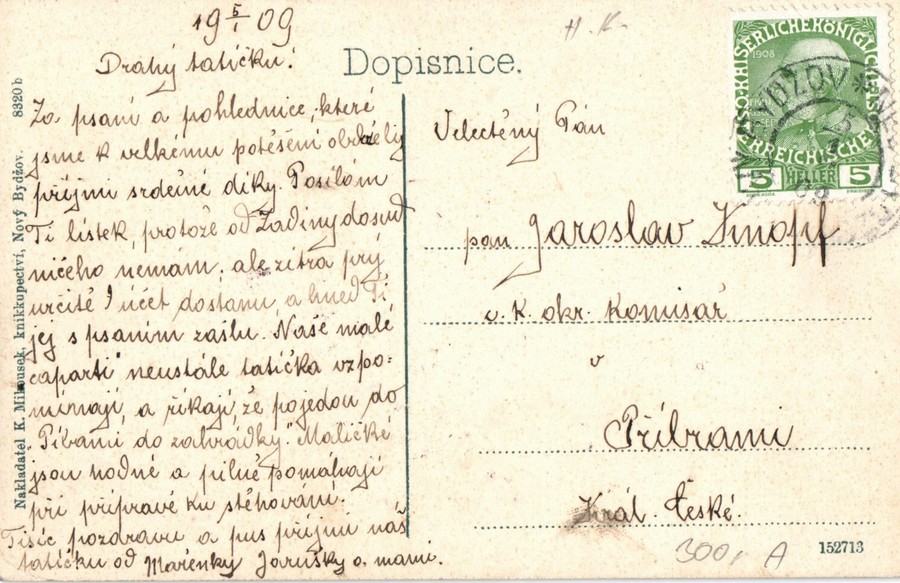 19 5/1 09
H. K.
Drahý tatíčku!
Dopisnice.
Za psaní a pohlednice, které
jsme k velkému potěšení obdrželi
přijmi srdečné díky. Posílám
Ti lístek, protože od Žadiny dosud
ničeho nemám, ale zítra prý
určitě účet dostanu, a hned Ti
jej s psaním zašlu. Naše malé
"caparti" neustále tatíčka vzpo-
mínají, a říkají, že pojedou do
"Píbami do zahrádky." Maličké
jsou hodné a pilně pomáhají
při přípravě ku stěhování.
Tisíc pozdravů a pus přijmi náš
tatíčku od Mařenky Jarušky a mami.
Velectěný Pán
pan Jaroslav Knopf
c. k. okr. komisař
v
Příbrami
Král. České.
300,- A
152713
Nakladatel K. Mikousek, knihkupectví, Nový Bydžov. 8320 b
KAISERLICHE KÖNIGLICHE
ÖSTERREICHISCHE
1908
5 HELLER 5
BYDŽOV